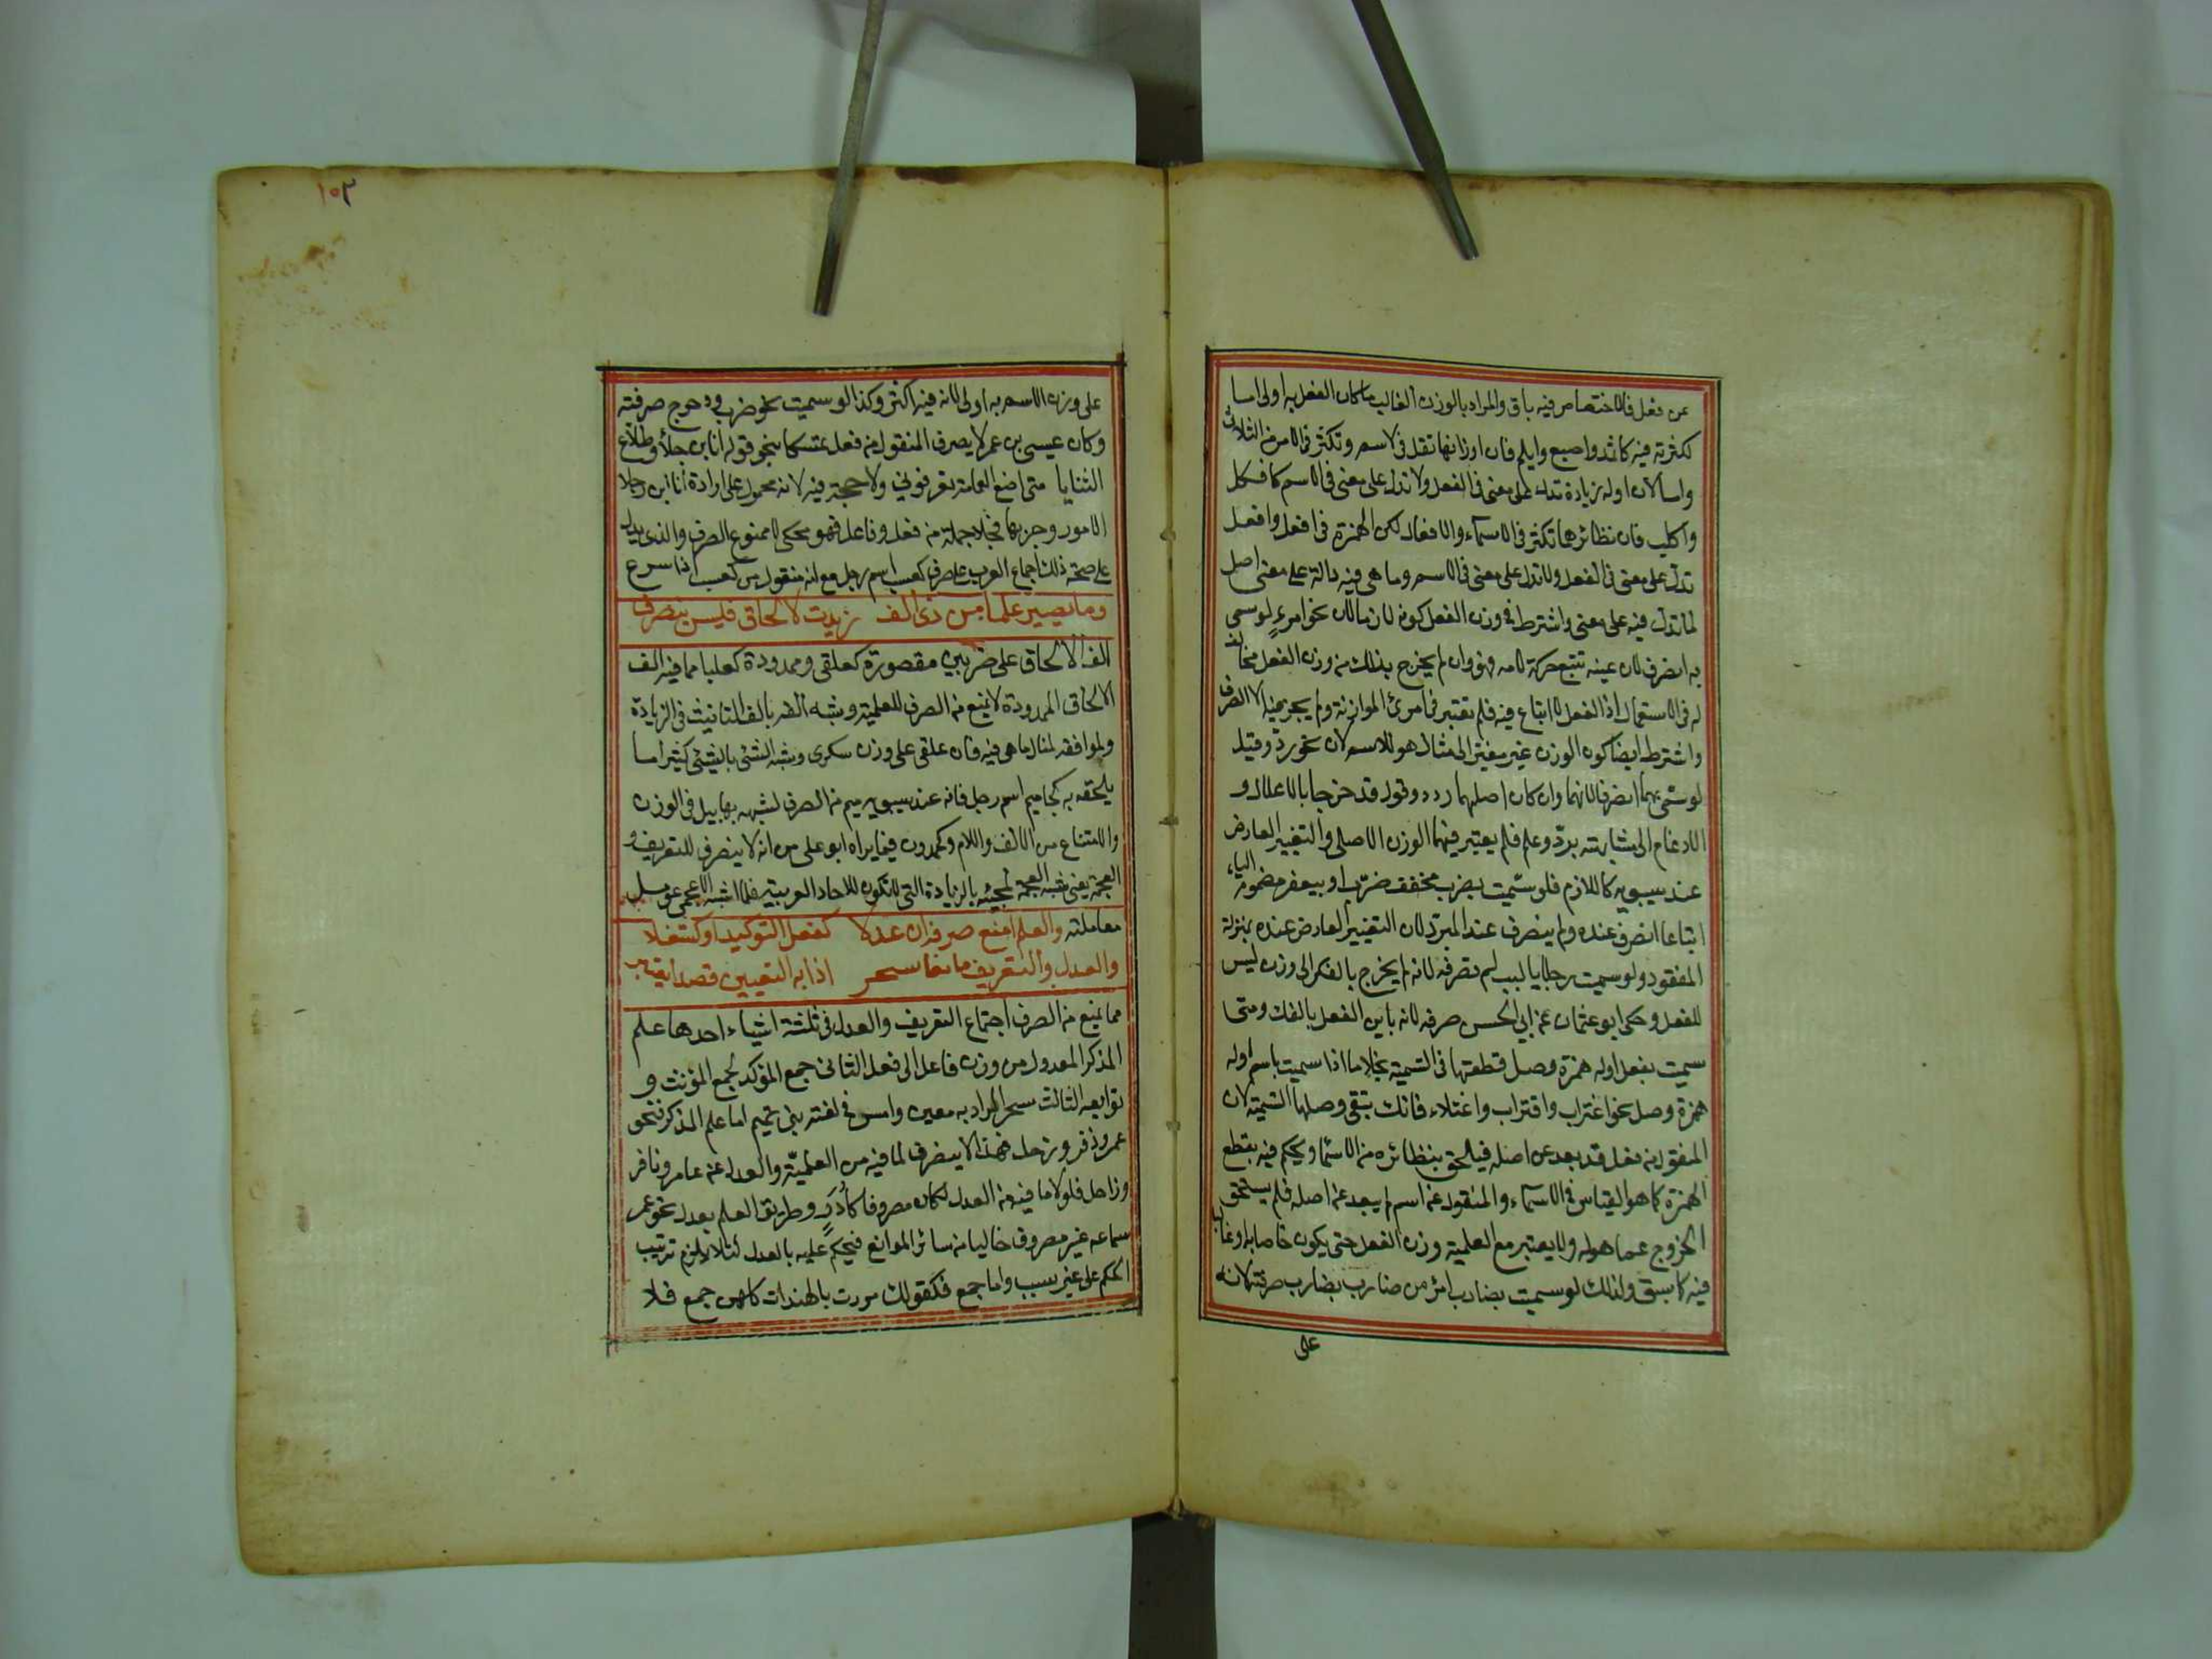 عن فعل فالاختصاص فيه باق والمراد بالوزن الغالب ما كان الفعل به اولى اما
لكثرته فيه كاثمد واصبع وابلم فان اوزانها تقل في لاسم وتكثر في الامر من الثلاثي
واما لان اوله زيادة تدل على معنى في الفعل ولا تدل على معنى في الاسم كافكل
واكلب فان نظائرها تكثر في الاسماء والافعال لكن الهمزة في افعل وافعل
تدل على معنى في الفعل ولا تدل على معنى في الاسم وما هي فيه دالة على معنى اصل
لما تدل فيه على معنى واشترط في وزن الفعل كونه لازما لان نحو امرءٍ لو سمي
به انصرف لان عينه تتبع حركة لامه فهو وان لم يخرج بذلك من وزن الفعل مخالف
له في الاستعمال اذ الفعل لا اتباع فيه فلم تعتبر في امرئ الموازنة ولم يجز فيه الا الصرف
واشترط ايضا كون الوزن غير مغير الى مثال هو للاسم لان نحو ردّ وقيل
لو سمي بهما انصرفا لانهما وان كان اصلهما ردد وقول قد خرجا بالاعلال و
الادغام الى مشابهة برد وعلم فلم يعتبر فيهما الوزن الاصلي والتغيير العارض
عند سيبويه كاللازم فلو سميت بضرب مخفف ضرب او بيعفر مضموم الياء
اتباعا انصرف عنده ولم ينصرف عند المبرد لان التغيير العارض عنده بمنزلة
المفقود ولو سميت رجلا بالبب لم تصرفه لانه لم يخرج بالفك الى وزن ليس
للفعل وحكى ابو عثمان عن ابي الحسن صرفه لانه باين الفعل بالفك ومتى
سميت بفعل اوله همزة وصل قطعتها في التسمية بخلاف ما اذا سميت باسم اوله
همزة وصل نحو اغتراب واقتراب واعتلاء فانك تبقى وصلها التسمية لان
المنقول من فعل قد بعد عن اصله فيلحق بنظائره من الاسما ويحكم فيه بقطع
الهمزة كما هو القياس في الاسماء والمنقول عن اسم لم يبعد عن اصله فلم يستحق
الخروج عما هو له ولا يعتبر مع العلمية وزن الفعل حتى يكون خاصا به او غالبا
فيه كما سبق ولذلك لو سميت بضارب امر من ضارب يضارب صرفته لانه
على
١٠٣
على وزن الاسم به اولى لانه فيه اكثر وكذا لو سميت نحو ضرب ودحرج صرفته
وكان عيسى بن عمر لا يصرف المنقول من فعل متمسكا بنحو قوله انا ابن جلا وطلاع
الثنايا متى اضع العمامة تعرفوني ولا حجة فيه لانه محمول على ارادة انا ابن رجلا
الامور وجربها فجلا جملة من فعل وفاعل فهو محكي لا ممنوع الصرف والذي يدل
على صحة ذلك اجماع العرب على صرف كعسب اسم رجل مع انه منقول من كعسب اذا سرع
وما يصير علما من ذي الف زيدت لالحاق فليس ينصرف
الف الالحاق على ضربين مقصورة كعلقى وممدودة كعلبا مما فيه الف
الالحاق الممدودة لا تمنع من الصرف للعلمية وشبه الفه بالف التانيث في الزيادة
ولموافقه لمثال ما هي فيه فان علقى على وزن سكرى وشبه الشئ بالشئ كثيرا ما
يلحقه به كحاميم اسم رجل فانه عند سيبويه من الصرف لشبهه بهابيل في الوزن
والامتناع من الالف واللام وكحمدون فيما يراه ابو على من انه لا ينصرف للتعريف و
العجمة يعني شبه العجمة لمجيئه بالزيادة التي لا تكون للاحاد العربية فلما اشبه الاعجمي عومل
معاملته والعلم امنع صرفه ان عدلا كفعل التوكيد او كثعلا
والعدل والتعريف مانعا سحر اذا به التعيين قصدا يعتبر
مما يمنع من الصرف اجتماع التعريف والعدل في ثلثة اشياء احدها علم
المذكر المعدول من وزن فاعل الى فعل الثاني جمع المؤكد لجمع المؤنث و
توابعه الثالث سحر المراد به معين وامس في لغة بني تميم اما علم المذكر فنحو
عمر وزفر وزحل فهذا لا ينصرف لما فيه من العلمية والعدل عن عامر وزافر
وزاحل فلولا ما فيه من العدل لكان مصروفا كادد وطريق العلم بعدل نحو عمر
سماعه غير مصروف خاليا من سائر الموانع فيحكم عليه بالعدل لئلا يلزم ترتيب
الحكم على غير سبب واما جمع فكقولك مررت بالهندات كلهن جمع فلا